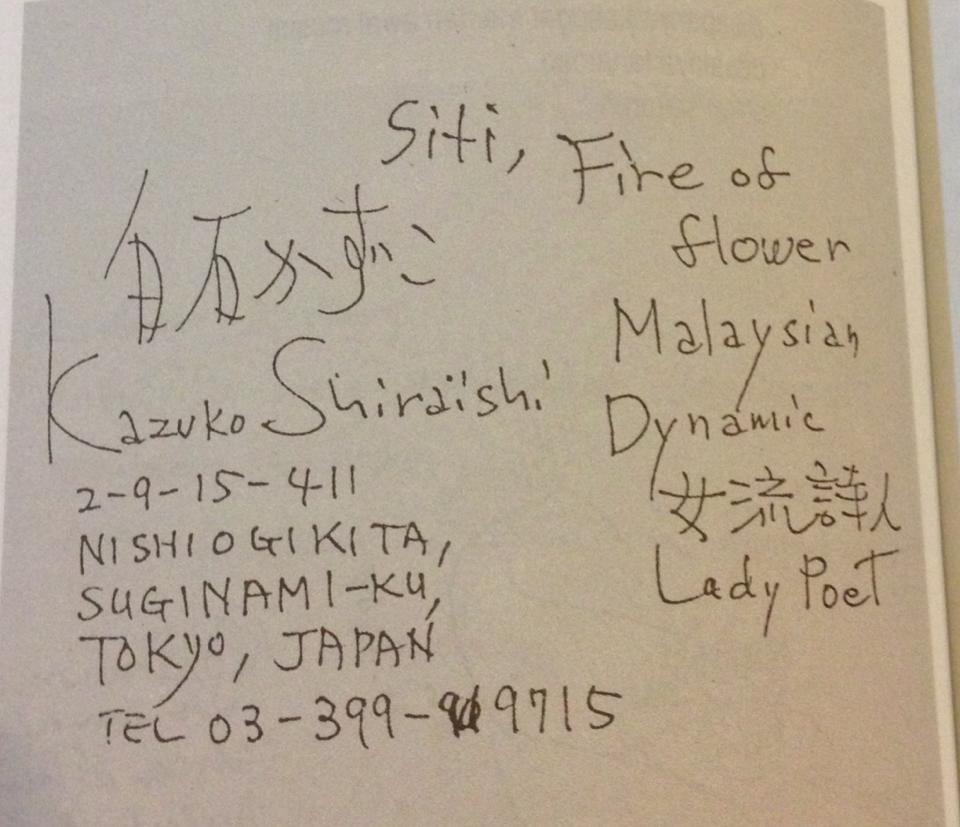 Siti, Fire of
flower
Malaysian
Dynamic
女流詩人
Lady Poet
白石かずこ
Kazuko Shiraishi
2-9-15-411
NISHIOGIKITA,
SUGINAMI-KU,
TOKYO, JAPAN
TEL 03-399-9715